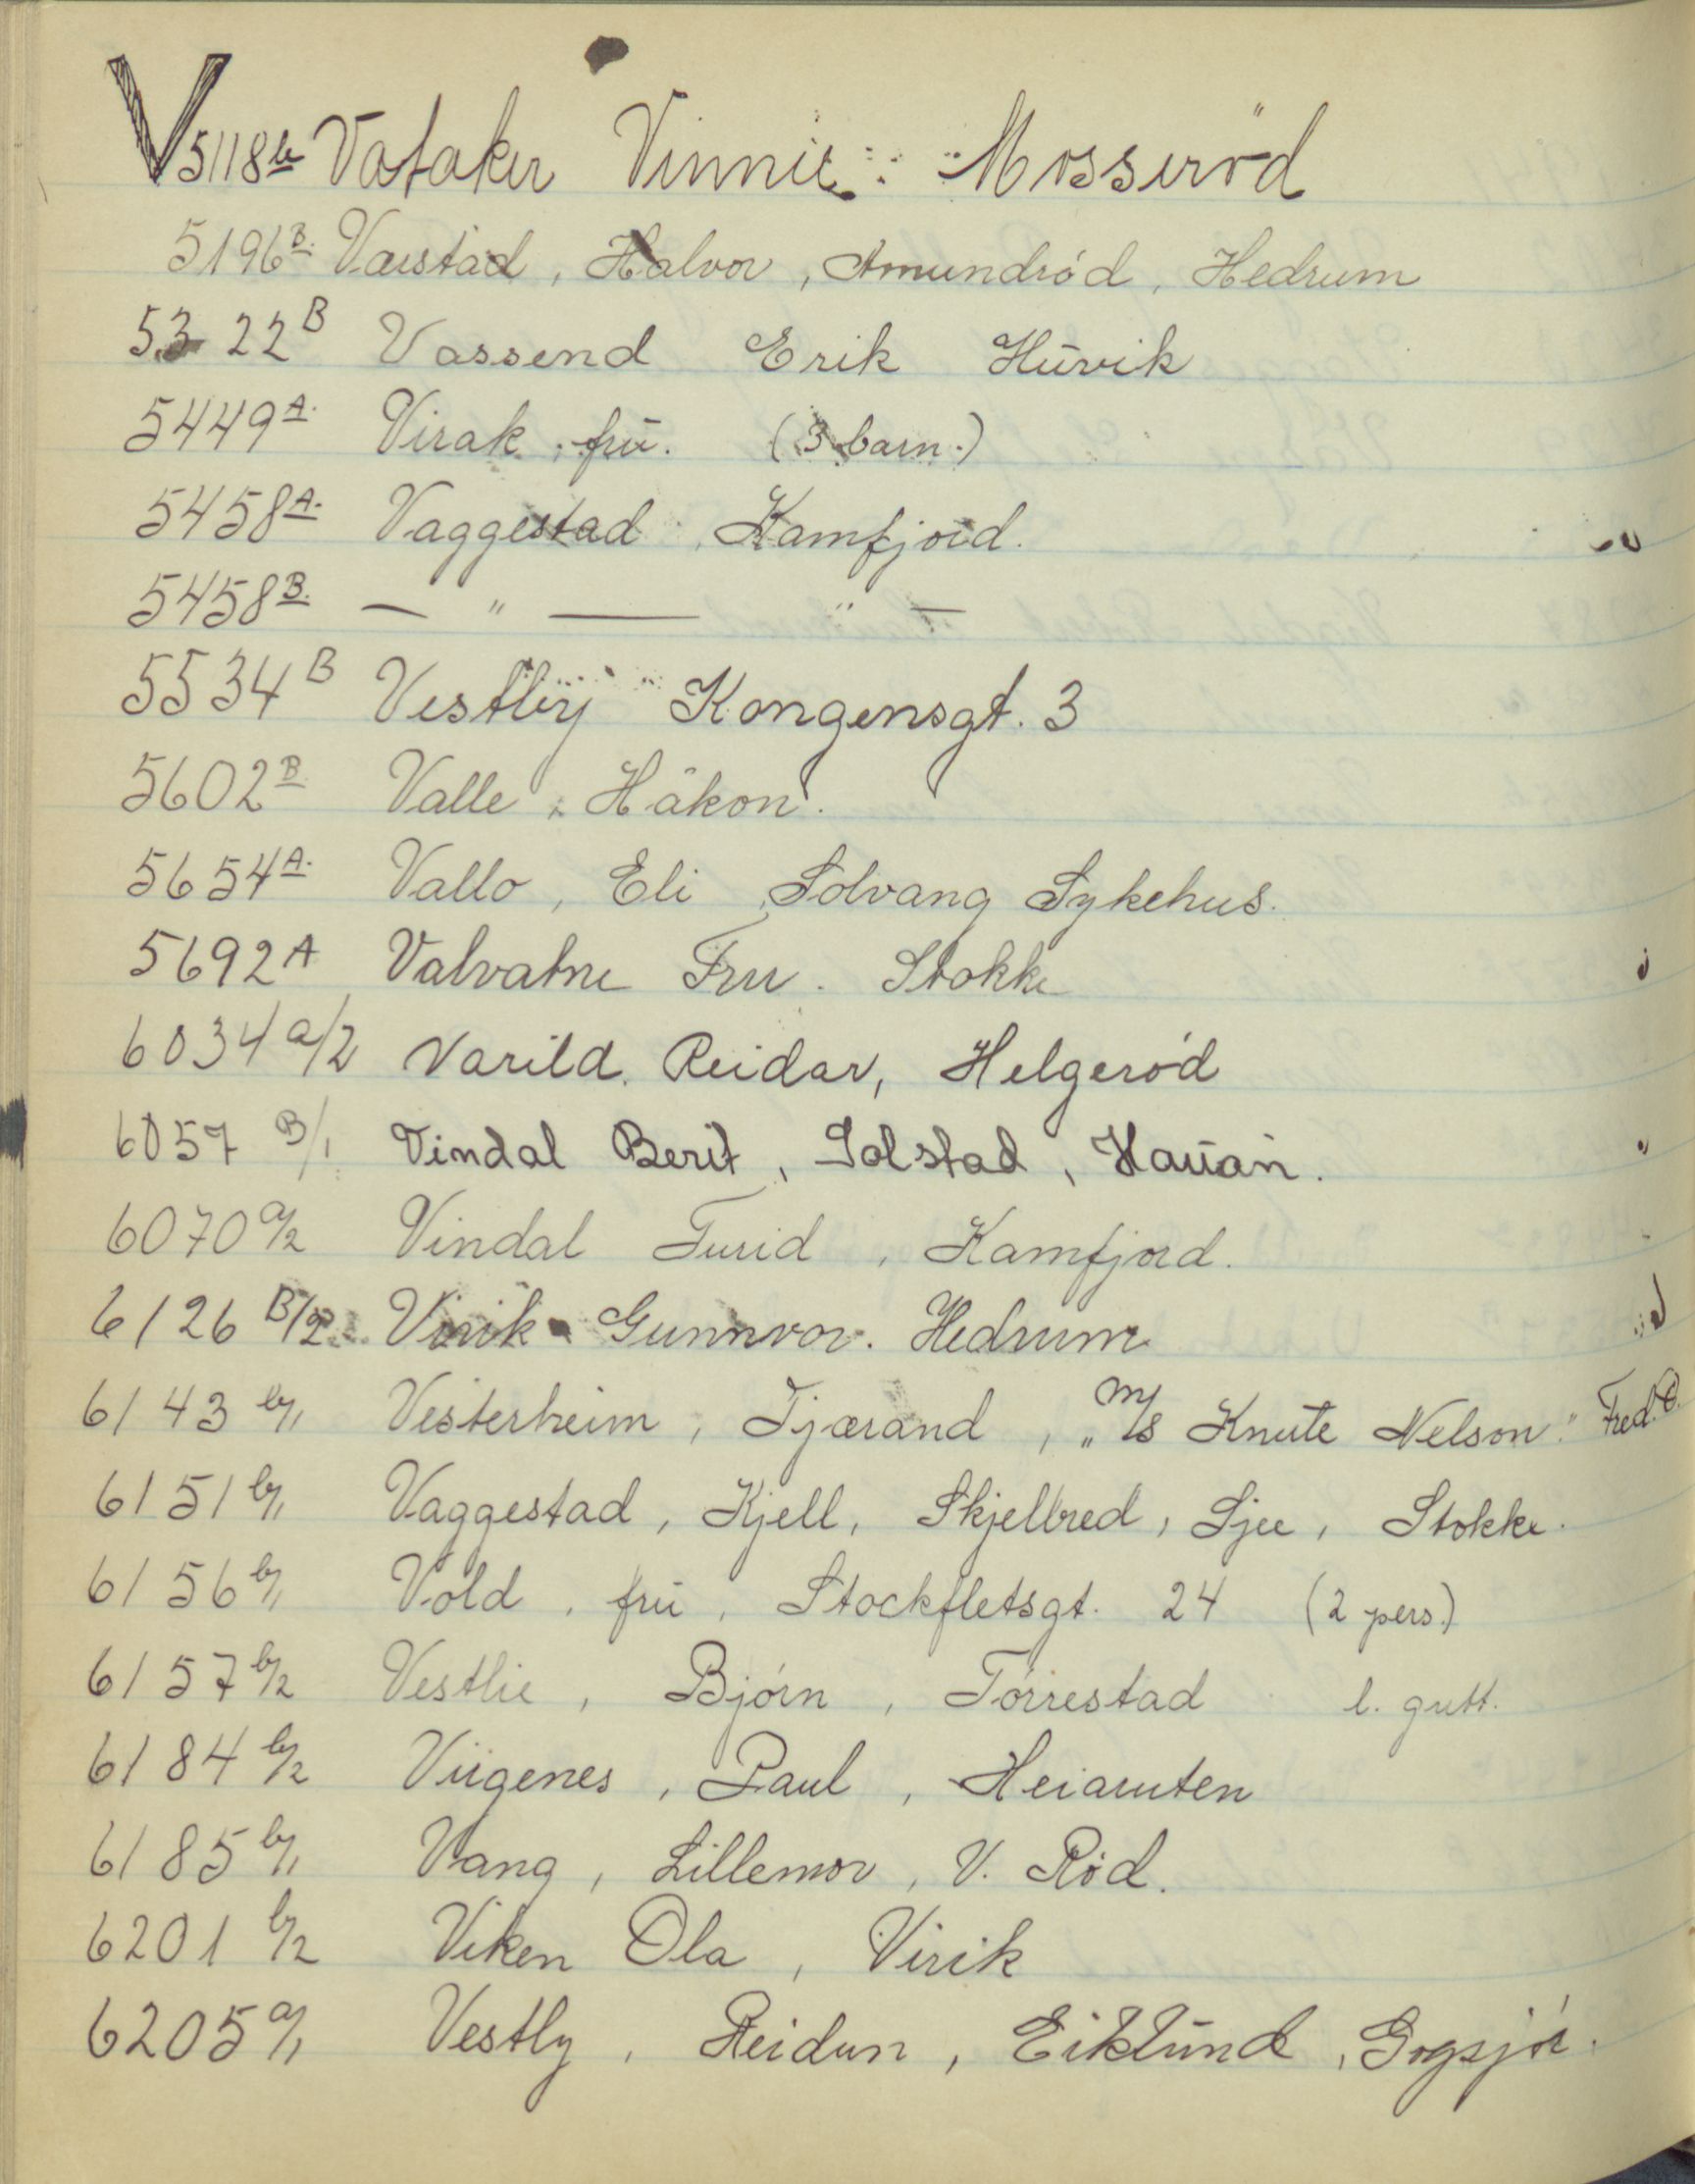 V
5118b Vataker Vinnie Mosserød
5196B. Værstad, Halvor, Amundrød, Hedrum
5322B Vassend Erik Huvik
5449A. Virak, fru. (3 barn.)
5458A. Vaggestad, Kamfjord.
5458B. — " — " —
5534B Vestby Kongensgt. 3
5602B Valle, Håkon.
5654A. Vallo, Eli, Solvang Sykehus.
5692A Valvatne Fru. Stokke
6034 a/2 Varild, Reidar, Helgerød
6057 B/1 Vindal Berit, Solstad, Hauan.
6070 a/2 Vindal Turid, Kamfjord.
6126 B/2 Virik Gunnvor. Hedrum
6143 b/1 Vesterheim, Tjærand, „M/S Knute Nelson" Fred. O.
6151 b/1 Vaggestad, Kjell, Skjelbred, Sjee, Stokke.
6156 b/1 Vold, fru, Stockfletsgt. 24 (2 pers.)
6157 b/2 Vestlie, Bjørn, Torrestad l. gutt.
6184 b/2 Viigenes, Paul, Heiaruten
6185 b/1 Vang, Lillemor, V. Rød.
6201 b/2 Viken Ola, Virik
6205 a/1 Vestly, Reidun, Eiklund, Gogsjø.